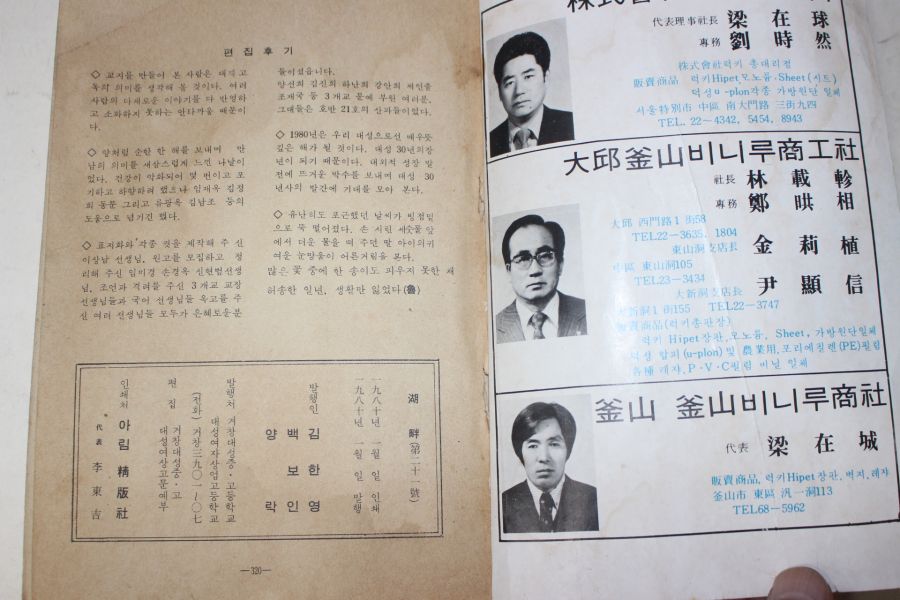 편 집 후 기
◇ 교지를 만들어 본 사람은 대략고
독의 의미를 생각해 볼 것이다. 여러
사람의 다채로운 이야기를 다 반영하
고 소화하지 못하는 안타까움 때문이
다.
◇ 양처럼 순한 한 해를 보내며 만
남의 의미를 새삼스럽게 느낀 나날이
었다. 건강이 악화되어 몇 번이고 포
기하고 하향하려 했으나 임재욱 김정
희 동문 그리고 유광옥 김남조 동의
도움으로 넘기긴 했다.
◇ 표지화와 각종 컷을 제작해 주 신
이상남 선생님, 원고를 모집하고 정
리해 주신 임이경 손경옥 신현범선생
님, 조언과 격려를 주신 3개교 교장
선생님들과 국어 선생님들 옥고를 주
신 여러 선생님들 모두가 은혜로운분
들이셨읍니다.
조재국 등 3개교 문예부원 여러분,
그대들은 호반 21호의 산파들이었다.
◇ 1980년은 우리 대성으로선 매우뜻
깊은 해가 될 것이다. 대성 30년의장
년이 되기 때문이다. 내외적 성장 발
전에 뜨거운 박수를 보내며 대성 30
년사의 발간에 기대를 모아 본다.
◇ 유난히도 포근했던 날씨가 빙점밑
으로 뚝 떨어졌다. 손 시린 세숫물 앞
에서 더운 물을 떠 주던 딸 아이의귀
여운 눈망울이 어른거림을 본다.
많은 꽃 중에 한 송이도 피우지 못한 채
허송한 일년, 생활만 잃었다(魯)
湖 畔(第二十一號)
一九八十년 一월 일 인쇄
一九八十년 一월 일 발행
발행인 김 한 영
백 보 인
양 락
발행처 거창대성중·고등학교
대성여자상업고등학교
(전화) 거창 三九〇一~〇七
편 집 거창대성중·고
대성여상고문예부
인쇄처 아림 精版社
代表 李 東 吉
—320—
代表理事社長 梁 在 球
專務 劉 時 然
株式會社럭키 총대리점
販賣商品 럭키Hipet모노륨·Sheet(시트)
덕성u-plon각종 가방원단 일체
서울特別市 中區 南大門路 三街九四
TEL. 22-4342, 5454, 8943
大邱釜山비니루商工社
社長 林 載 軫
專務 鄭 畊 相
大邱 西門路1街58
TEL22-3635, 1804
東山洞支店長 金 莉 植
中區 東山洞105
TEL23-3434
大新洞支店長 尹 顯 信
大新洞1街155 TEL22-3747
販賣商品(럭키총판장)
럭키 Hipet장판,모노륨, Sheet, 가방원단일체
덕성 합피(u-plon)및 農業用,포리에칠렌(PE)필림
各種 레자, P·V·C필림 비닐 일체
釜山 釜山비니루商社
代表 梁 在 城
販賣商品, 럭키Hipet장판, 벽지, 레쟈
釜山市 東區 汎一洞113
TEL68-5962